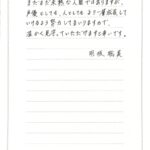 まだまだ未熟な人間ではありますが、
声優としても、人としても、より一層成長して
いけるよう努力してまいりますので、
温かく見守っていただけますと幸いです。